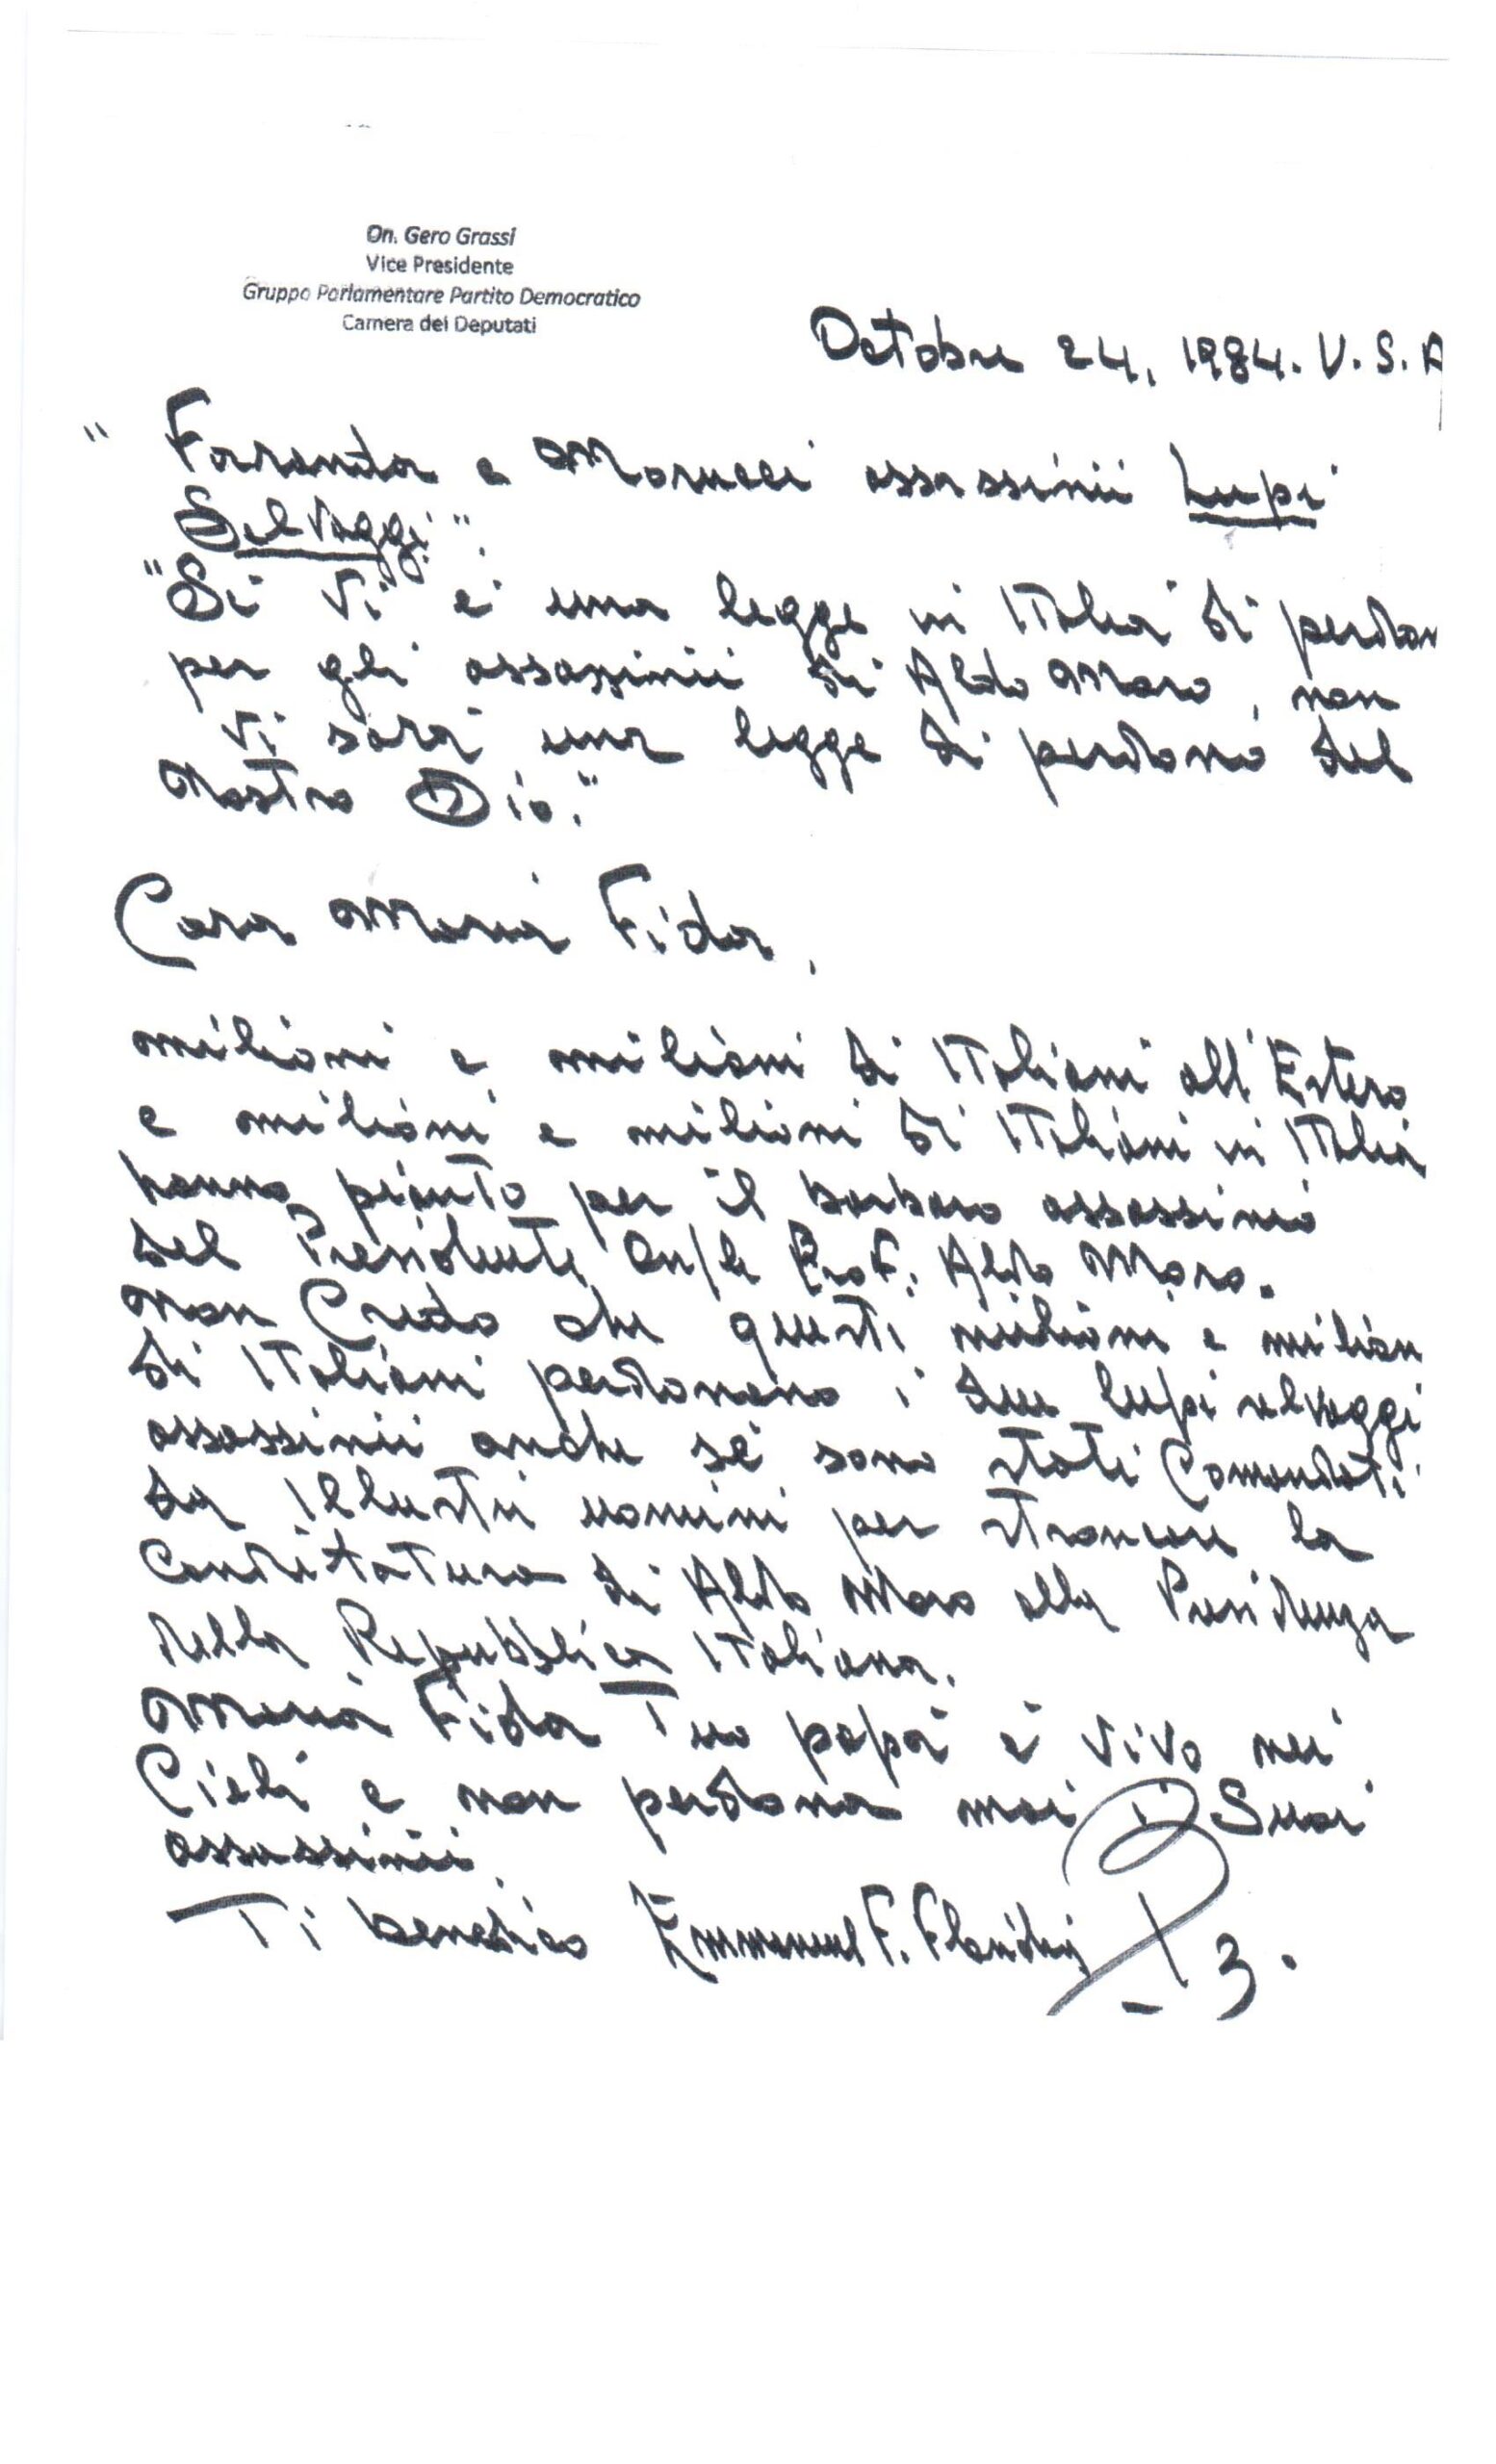 On. Gero Grassi
Vice Presidente
Gruppo Parlamentare Partito Democratico
Camera dei Deputati
Octobre 24, 1984. U.S.A
" Farranda e Morucci assassinii Lupi
Selvaggi".
"Si vi è una legge in Italia di perdon
per gli assassinii di Aldo Moro, non
vi sarà una legge di perdono del
nostro Dio."
Cara Maria Fida,
milioni e milioni di Italiani all'Estero
e milioni e milioni di Italiani in Italia
hanno pianto per il barbaro assassinio
del Presidente On/le Prof. Aldo Moro.
non Credo che questi milioni e milion
di Italiani perdonano i due lupi selvaggi
assassinii anche sé sono stati Comandati
da Illustri uomini per stroncare la
Canditatura di Aldo Moro alla Presidenza
della Repubblica Italiana.
Maria Fida Tuo papà è vivo nei
Cieli e non perdona mai i Suoi
assassinii.
Ti benedico Emmanuel F.
- 3.